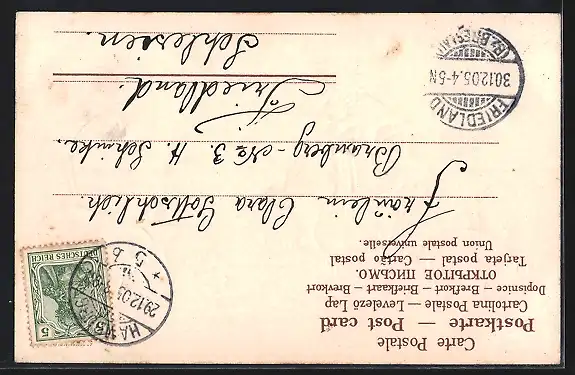 Carte Postale
Postkarte — Post card
Cartolina Postale — Levelező Lap
Dopisnice — Brefkort — Briefkaart — Brevkort
ОТКРЫТОЕ ПИСЬМО.
Tarjeta postal — Cartão postal
Union postale universelle.
DEUTSCHES REICH
5
HAMBURG
29.12.05
* 5 b
Fräulein Clara Gottschlich.
Bramberg - No 3. H. Schinke.
Friedland.
Schlesien.
FRIEDLAND
30.12.05.4-5N
(Bz. BRESLAU)